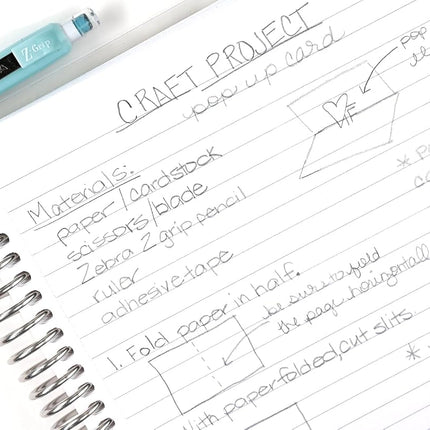 Z-Grip
CRAFT PROJECT
pop up card
pop
Materials:
paper/cardstock
scissors/blade
Zebra Z grip pencil
ruler
adhesive tape
1. Fold paper in half.
be sure to fold
the page horizontally
With paper folded, cut slits.